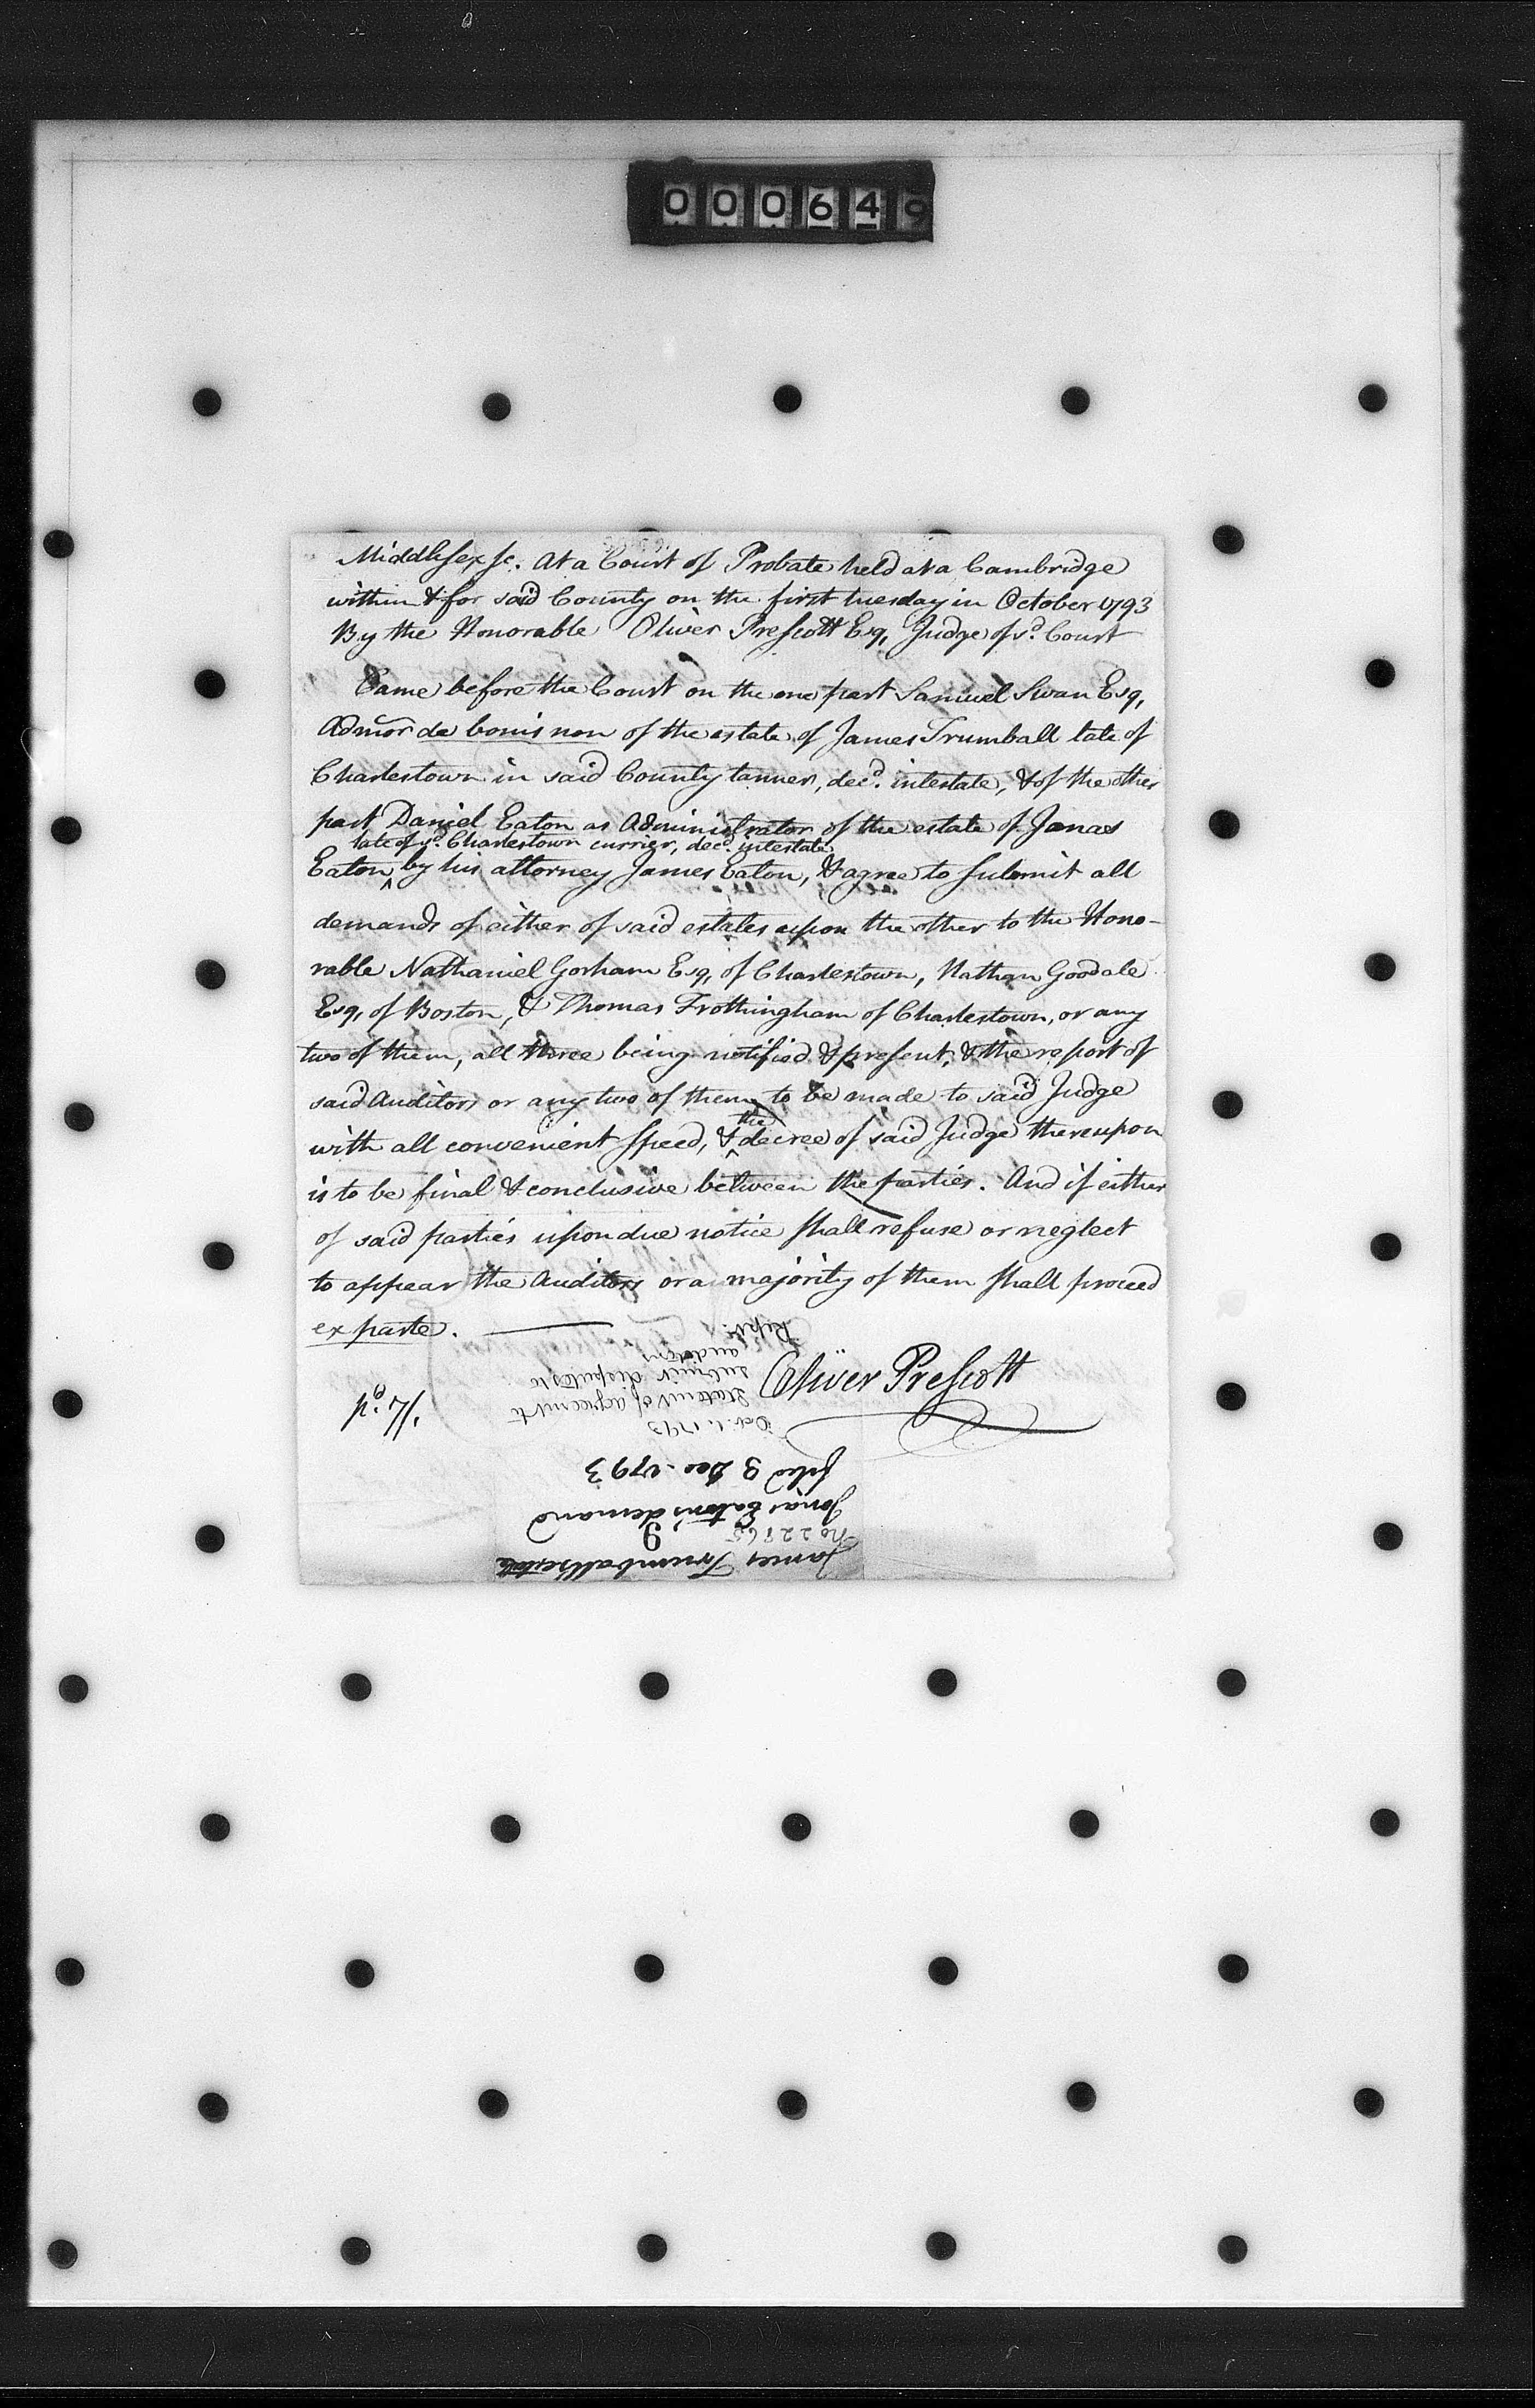 000649
Middlesex ss. At a Court of Probate held at a Cambridge
within & for said County on the first tuesday in October 1793
By the Honorable Oliver Prescott Esq, Judge of sd. Court
Came before the Court on the one part Samuel Swan Esq,
Admor de bonis non of the estate of James Trumball late of
Charlestown in said County tanner, decd. intestate, & of the other
part Daniel Eaton as Administrator of the estate of Jonas
late of sd. Charlestown currier, decd. intestate
Eaton, by his attorney James Eaton, & agree to submit all
demands of either of said estates upon the other to the Hono-
rable Nathaniel Gorham Esq, of Charlestown, Nathan Goodale
Esq, of Boston, & Thomas Frothingham of Charlestown, or any
two of them, all three being notified & present, & the report of
said Auditors or any two of them to be made to said Judge
the
with all convenient speed, & decree of said Judge thereupon
is to be final & conclusive between the parties. And if either
of said parties upon due notice shall refuse or neglect
to appear the Auditors or a majority of them shall proceed
ex parte.
Oliver Prescott
pd. 7/.
James Trumball's estate
No 22865
9
Jonas Eaton's demand
filed 3 Dec. 1793
Oct. 1. 1793
Statemt of agreemt to
submit disputes to
auditors